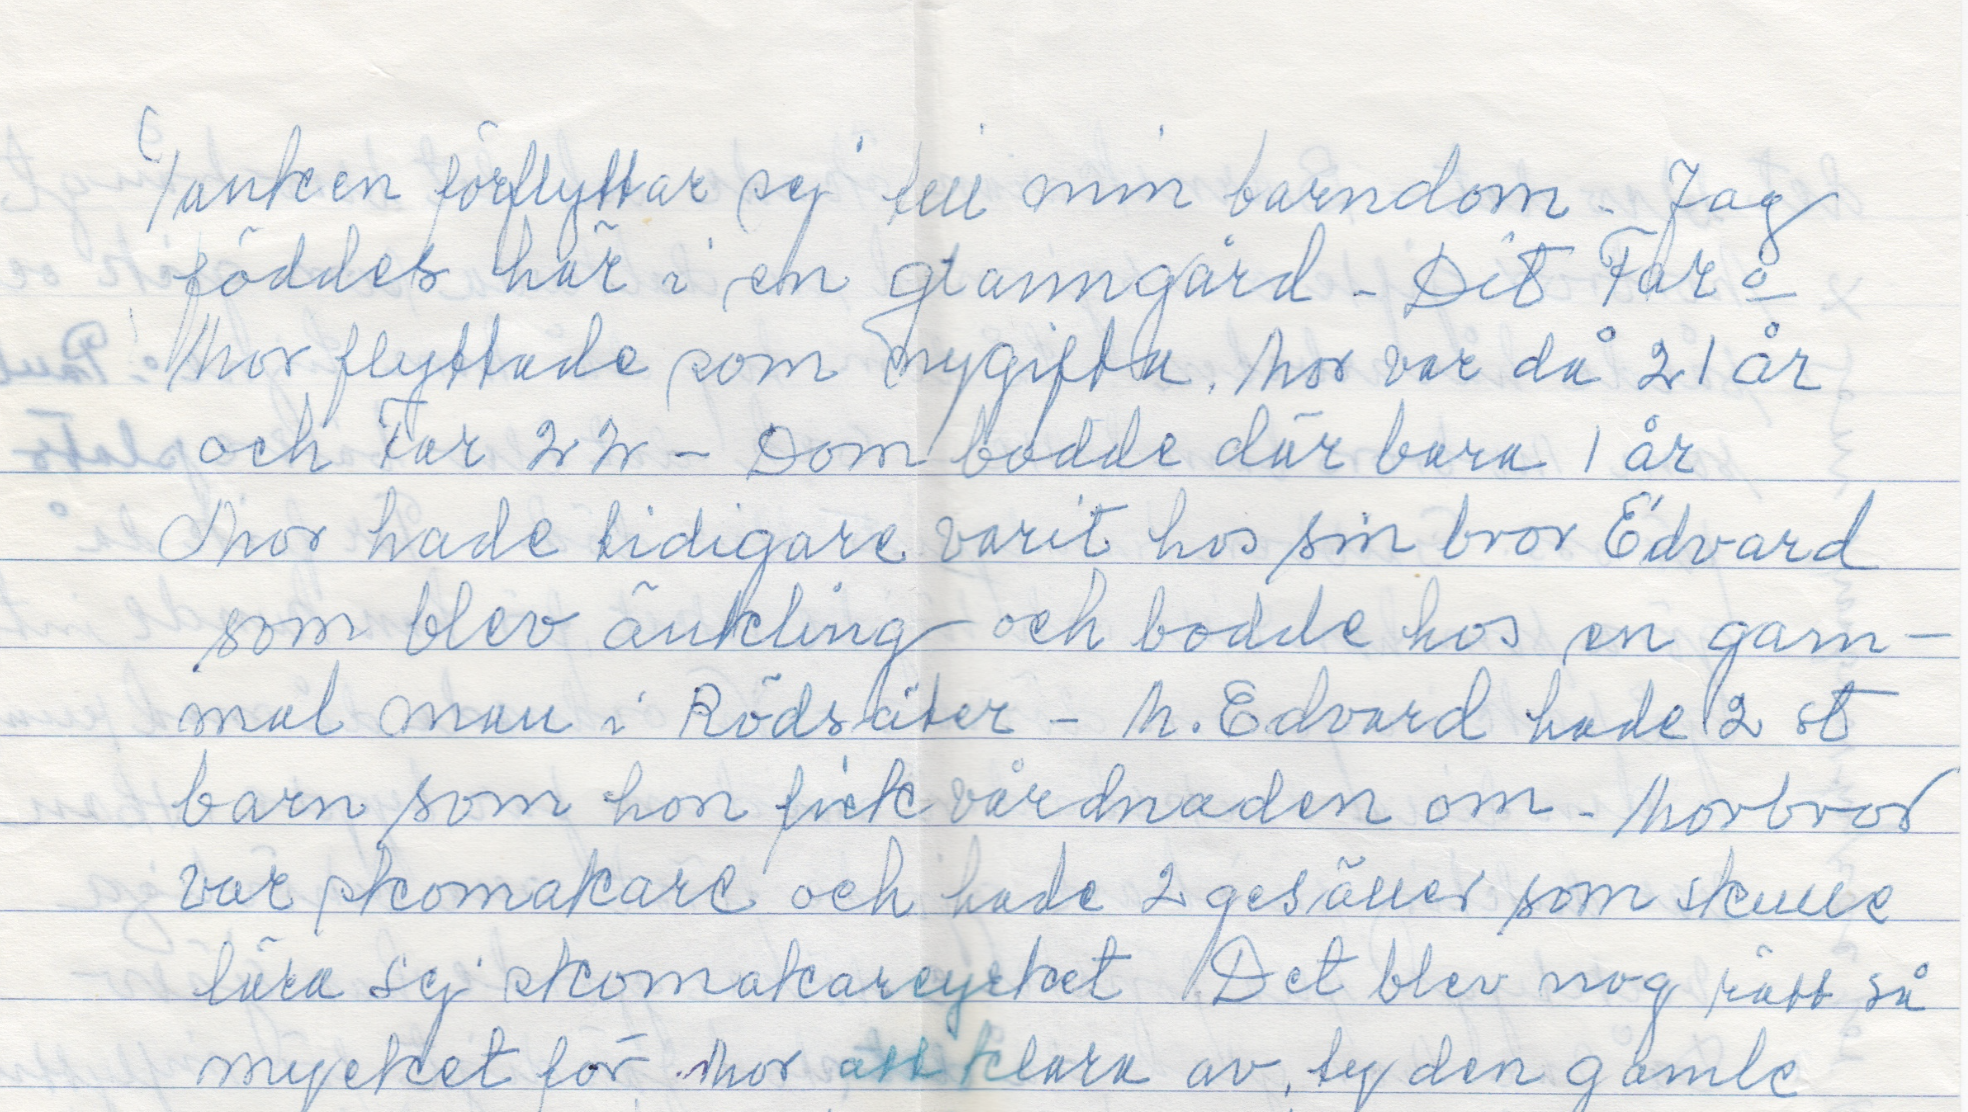 Tanken förflyttar sej till min barndom - Jag
föddes här i en granngård - Dit Far o
Mor flyttade som nygifta. Mor var då 21 år
och Far 22 - Dom bodde där bara 1 år
Mor hade tidigare varit hos sin bror Edvard
som blev änkling och bodde hos en gam-
mal man i Rödsäter - M. Edvard hade 2 st
barn som hon fick vårdnaden om - Morbror
var skomakare och hade 2 gesäller som skulle
lära sej skomakareyrket Det blev nog rätt så
mycket för Mor att klara av, ty den gamle